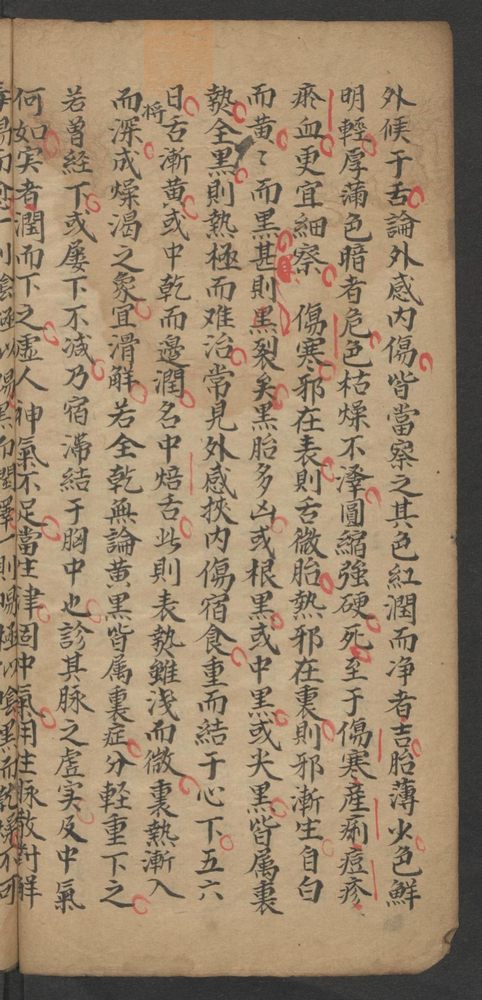 外候于舌論外感内傷皆當察之其色紅潤而净者吉胎薄少色鮮
明輕厚蒲色暗者危色枯燥不澤圓縮強硬死至于傷寒産痢痘疹
瘀血更宜細察傷寒邪在表則舌微胎熱邪在裏則邪漸生自白
而黄〻而黑甚則黑裂矣黑胎多凶或根黑或中黑或尖黑皆属裏
熱全黑則熱極而难治常見外感挾内傷宿食重而結于心下五六
日舌漸黄或中乾而邊潤名中焙舌此則表熱雖浅而微裏熱漸入
将
而深成燥渴之象宜滑解若全乾無論黄黑皆属裏症分輕重下之
若曾經下或屡下不减乃宿滞結于胸中也診其脉之虚实及中氣
何如实者潤而下之虚人神氣不足當生津固中氣用生脉散対解